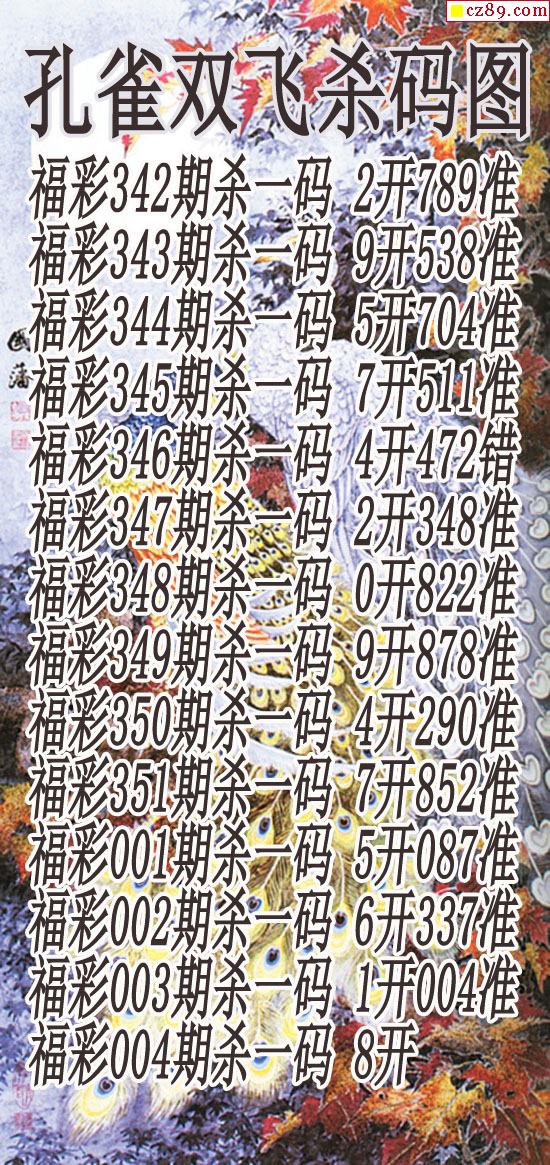 cz89.com
孔雀双飞杀码图
福彩342期杀一码 2开789准
福彩343期杀一码 9开538准
福彩344期杀一码 5开704准
福彩345期杀一码 7开511准
福彩346期杀一码 4开472错
福彩347期杀一码 2开348准
福彩348期杀一码 0开822准
福彩349期杀一码 9开878准
福彩350期杀一码 4开290准
福彩351期杀一码 7开852准
福彩001期杀一码 5开087准
福彩002期杀一码 6开337准
福彩003期杀一码 1开004准
福彩004期杀一码 8开